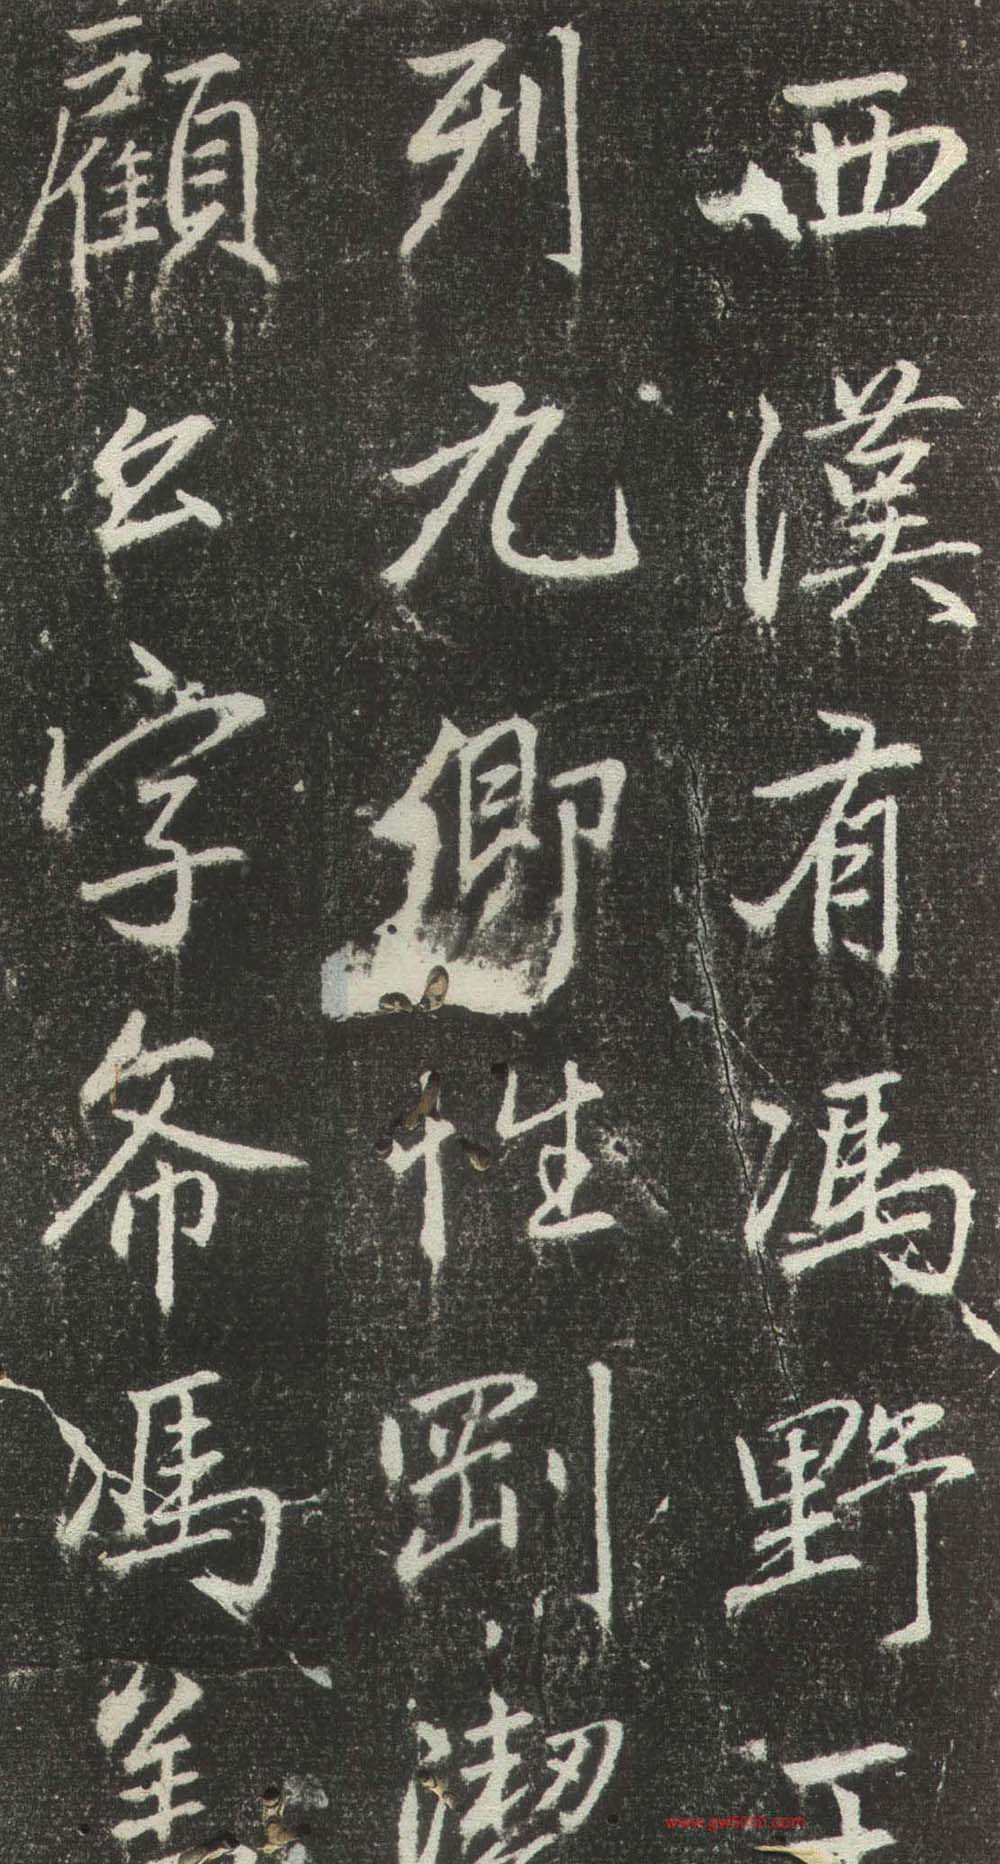 西漢有馮野王
列九卿性剛潔
顧公字希馮美
www.gw5000.com